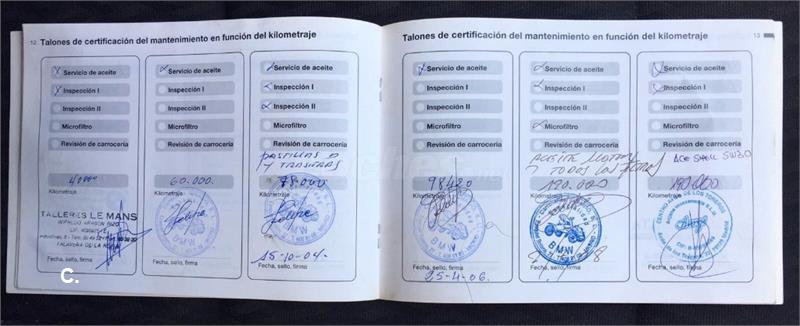 12 Talones de certificación del mantenimiento en función del kilometraje
Servicio de aceite
Inspección I
Inspección II
Microfiltro
Revisión de carrocería
40000
Kilometraje
TALLERES LE MANS
Fecha, sello, firma
Servicio de aceite
Inspección I
Inspección II
Microfiltro
Revisión de carrocería
60.000.
Kilometraje
BMW
Fecha, sello, firma
Servicio de aceite
Inspección I
Inspección II
Microfiltro
Revisión de carrocería
PASTILLAS D
Y TRASERAS
78.000
Kilometraje
BMW
Fecha, sello, firma
15-10-04-
C.
Talones de certificación del mantenimiento en función del kilometraje 13
Servicio de aceite
Inspección I
Inspección II
Microfiltro
Revisión de carrocería
98420
Kilometraje
BMW
Fecha, sello, firma
25-4-06.
Servicio de aceite
Inspección I
Inspección II
Microfiltro
Revisión de carrocería
ACEITE MOTOR
Y TODOS LOS FILTROS
120.000
Kilometraje
BMW
Fecha, sello, firma
Servicio de aceite
Inspección I
Inspección II
Microfiltro
Revisión de carrocería
SHELL 5W30
Kilometraje
Fecha, sello, firma